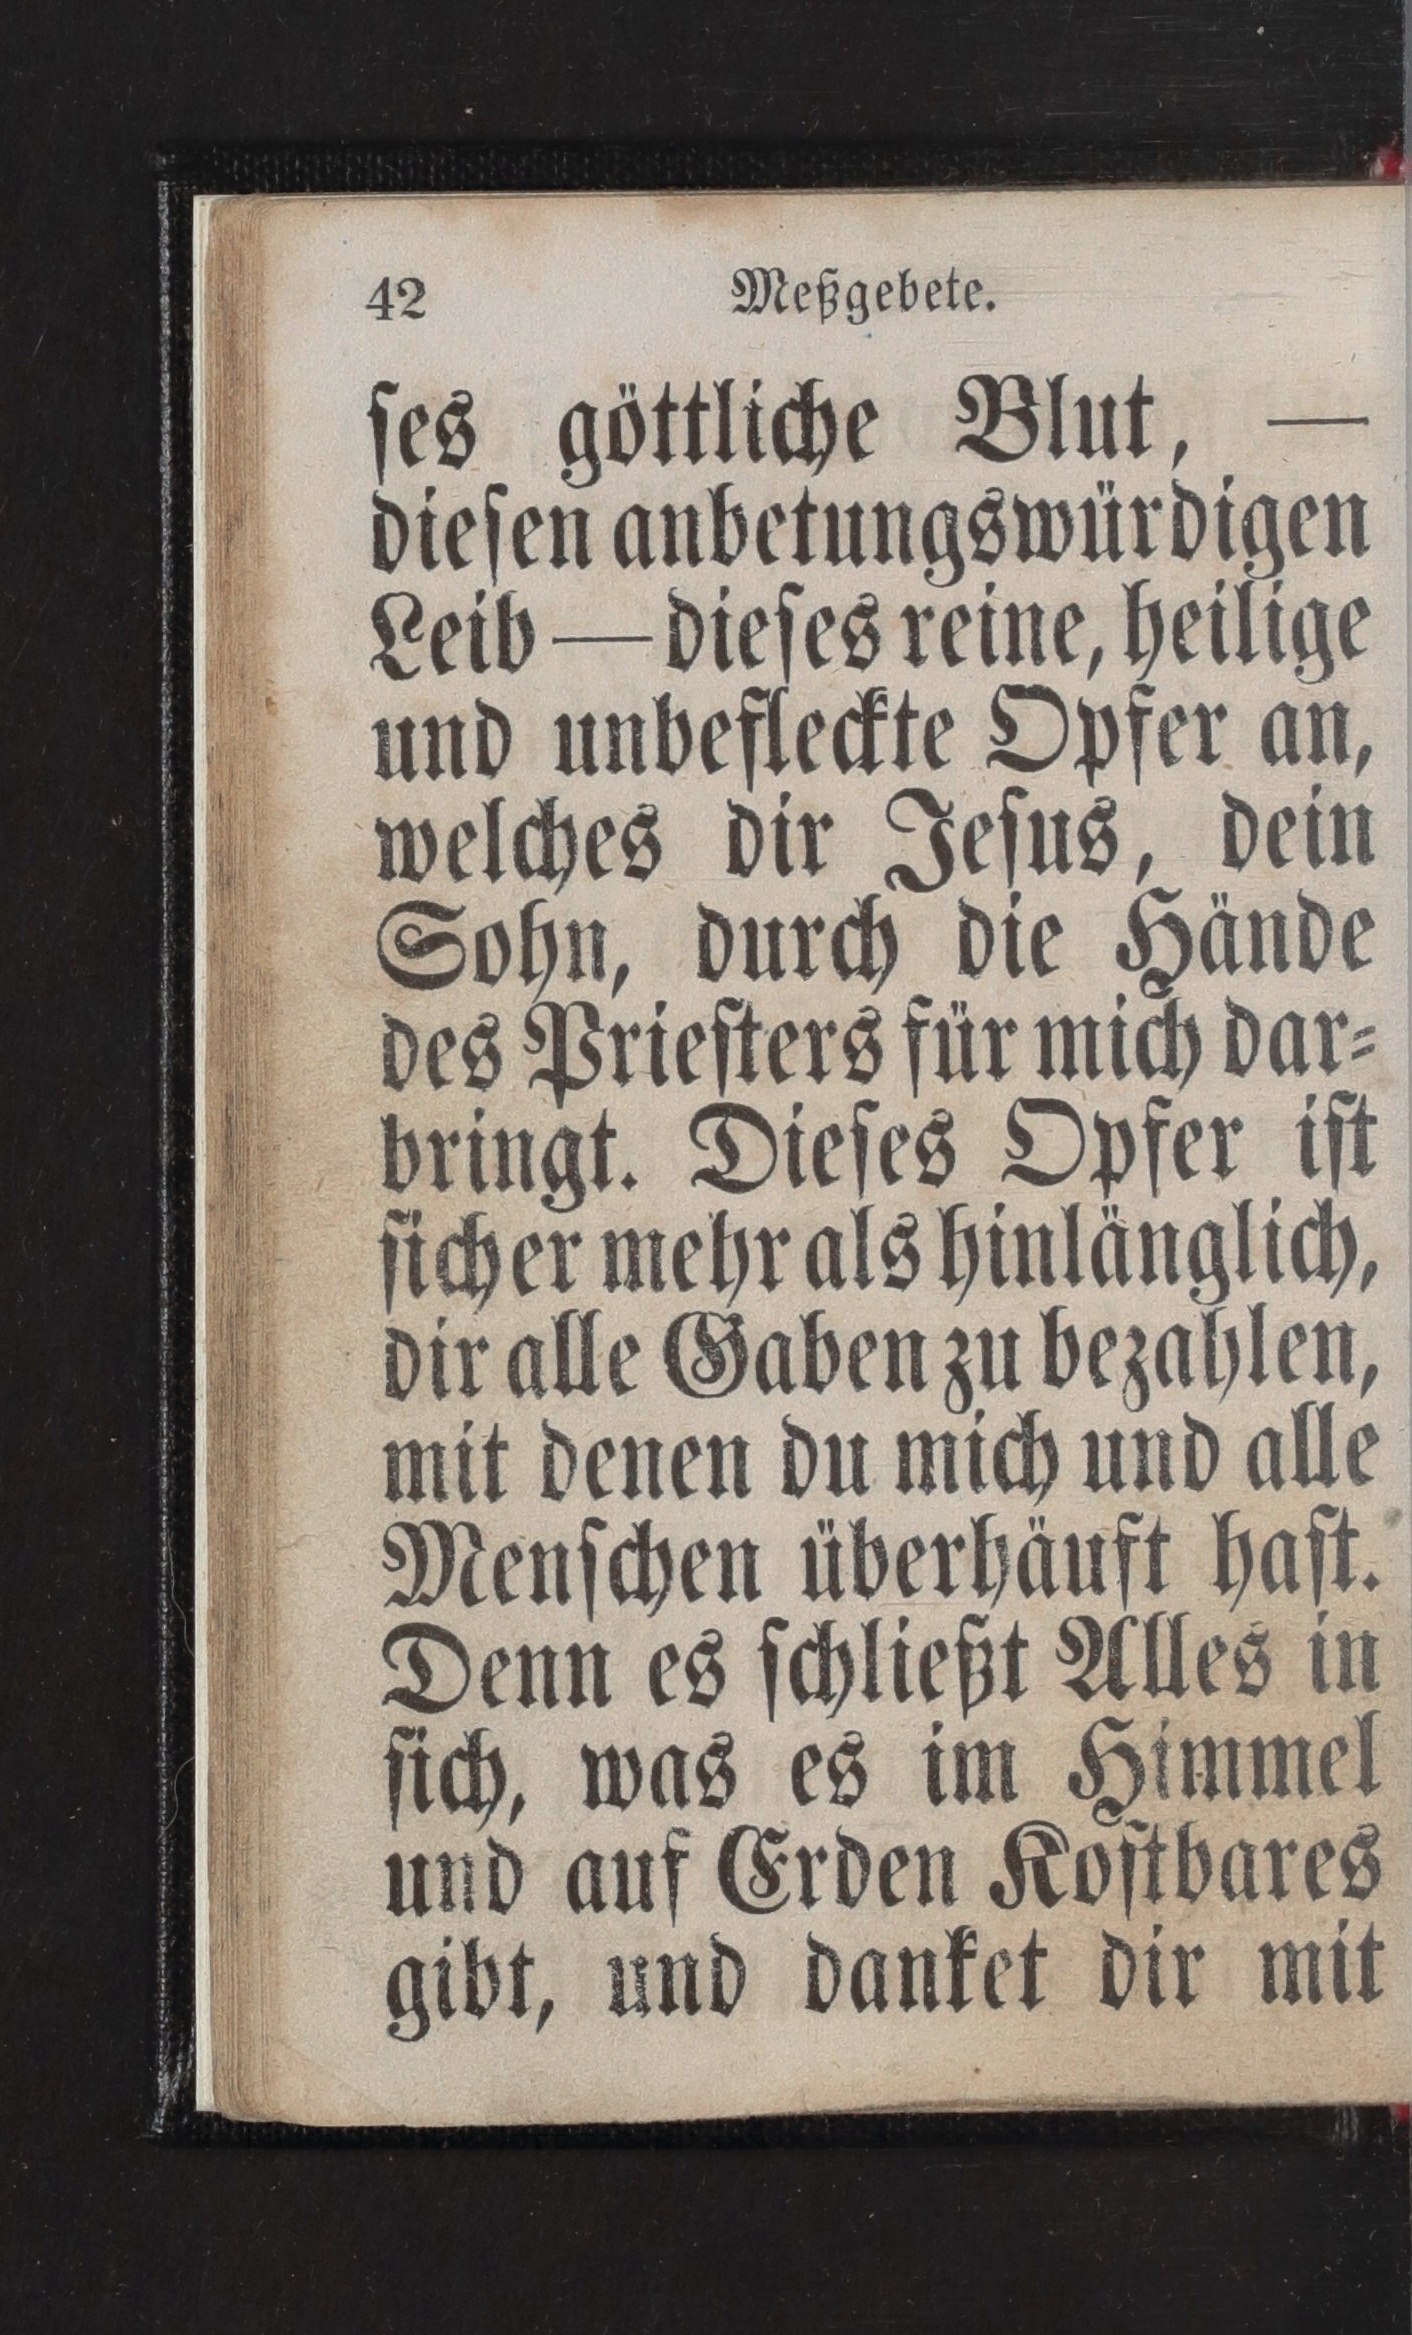 42 Meßgebete.
ſes göttliche Blut, —
dieſen anbetungswürdigen
Leib — dieſes reine, heilige
und unbefleckte Opfer an,
welches dir Jeſus, dein
Sohn, durch die Hände
des Prieſters für mich dar⸗
bringt. Dieſes Opfer iſt
ſicher mehr als hinlänglich,
dir alle Gaben zu bezahlen,
mit denen du mich und alle
Menſchen überhäuft haſt.
Denn es ſchließt Alles in
ſich, was es im Himmel
und auf Erden Koſtbares
gibt, und danket dir mit